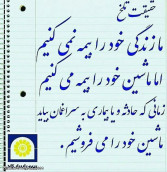 حقیقت تلخ
ما زندگی خود را بیمه نمی کنیم
اما ماشین خود را بیمه می کنیم
زمانی که حادثه و یا بیماری به سراغمان بیاید
ماشین خود را می فروشیم .